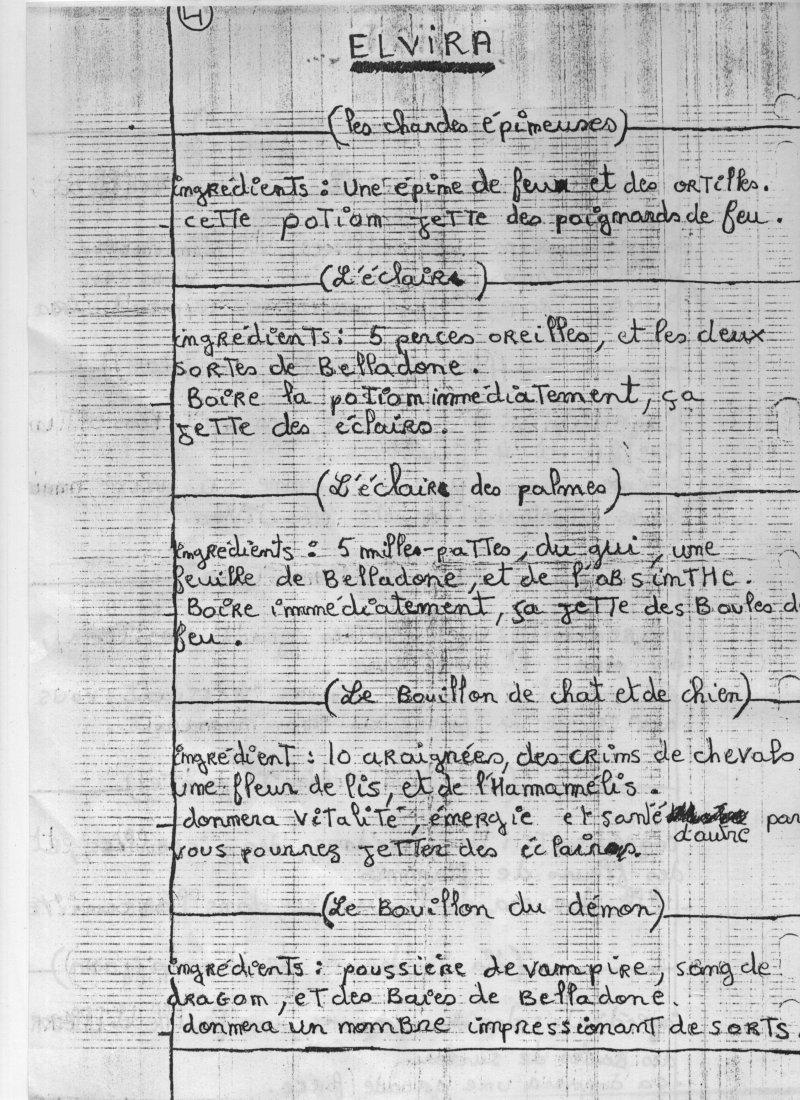 4
ELViRA
(les chandes épimeuses)
ingrédients : Une épime de feu et des ORTilles.
- cette potiom jette des poigmards de feu.
(L'éclair)
ingrédients : 5 perces oreilles, et les deux
sortes de Belladone.
- Boire la potiom immédiatement, ça
jette des éclairs.
(L'éclair des palmes)
ingrédients : 5 milles-pattes, du gui, une
feuille de Belladone, et de l'absimthe.
- Boire immmédiatement, ça jette des Boules d
feu.
(Le Bouillon de chat et de chien)
ingrédient : 10 araignées, des crims de chevals,
une fleur de lis, et de l'Hamamélis.
- donmera vitalité, émergie et santé d'autre par
vous pourrez jetter des éclairs.
(Le Bouillon du démon)
ingrédients : poussière de vampire, sang de
dragom, et des Baies de Belladone.
- donmera un mombre impressionant de sorts.